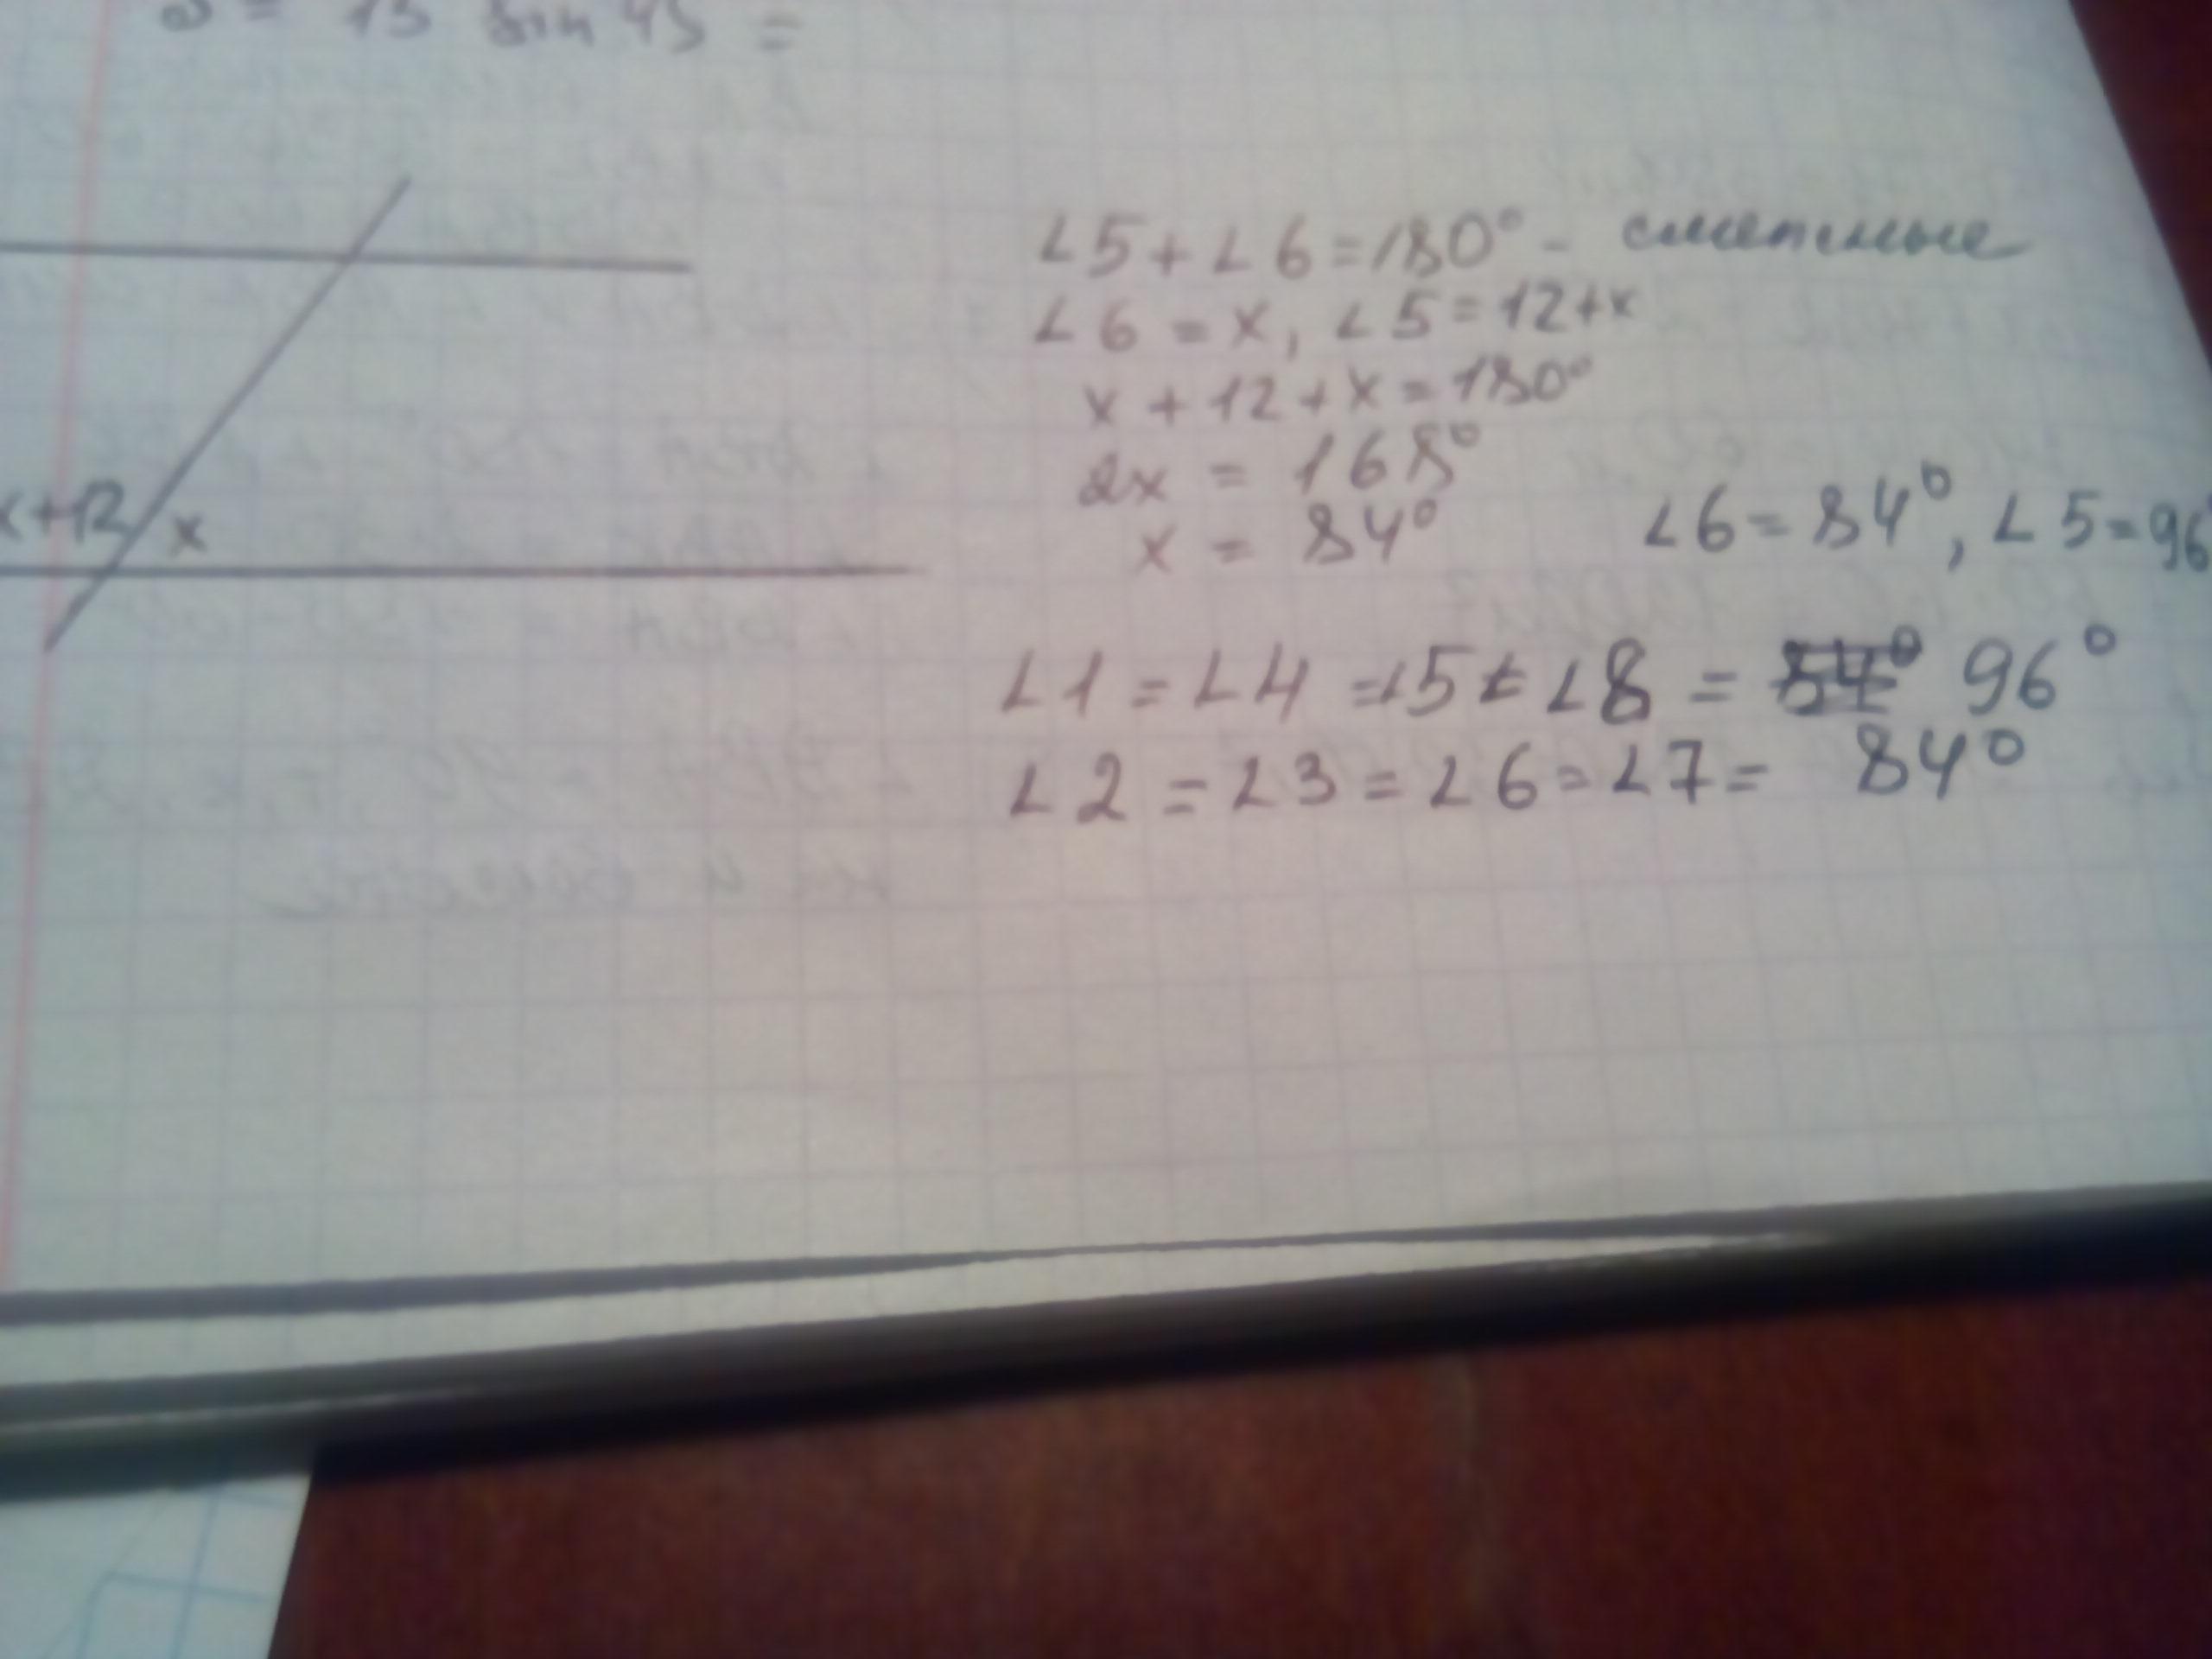 = 13 sin 45 =
∠5 + ∠6 = 180° - смежные
∠6 = x, ∠5 = 12+x
x + 12 + x = 180°
2x = 168°
x = 84°
∠6 = 84°, ∠5 = 96
x+12 x
∠1 = ∠4 = ∠5 = ∠8 = 96°
∠2 = ∠3 = ∠6 = ∠7 = 84°